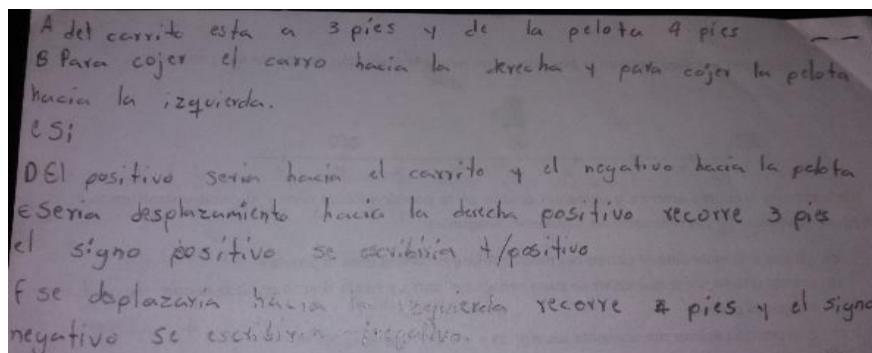 A del carrito esta a 3 pies y de la pelota 4 pies
B Para cojer el carro hacia la derecha y para cojer la pelota
hacia la izquierda.
C Si
D El positivo seria hacia el carrito y el negativo hacia la pelota
E Seria desplazamiento hacia la derecha positivo recorre 3 pies
el signo positivo se escribiria +/positivo
F se desplazaria hacia la izquierda recorre 4 pies y el signo
negativo se escribiria -/negativo.